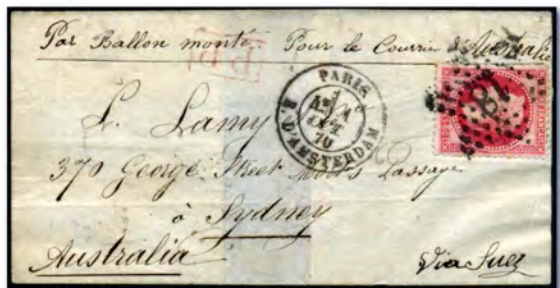 Par Ballon monté. Pour le Courrier d'Australie
PP
PARIS
70
R. D'AMSTERDAM
18
L. Lamy
370 George Street Mort's Passage
à Sydney
Australia
Via Suez